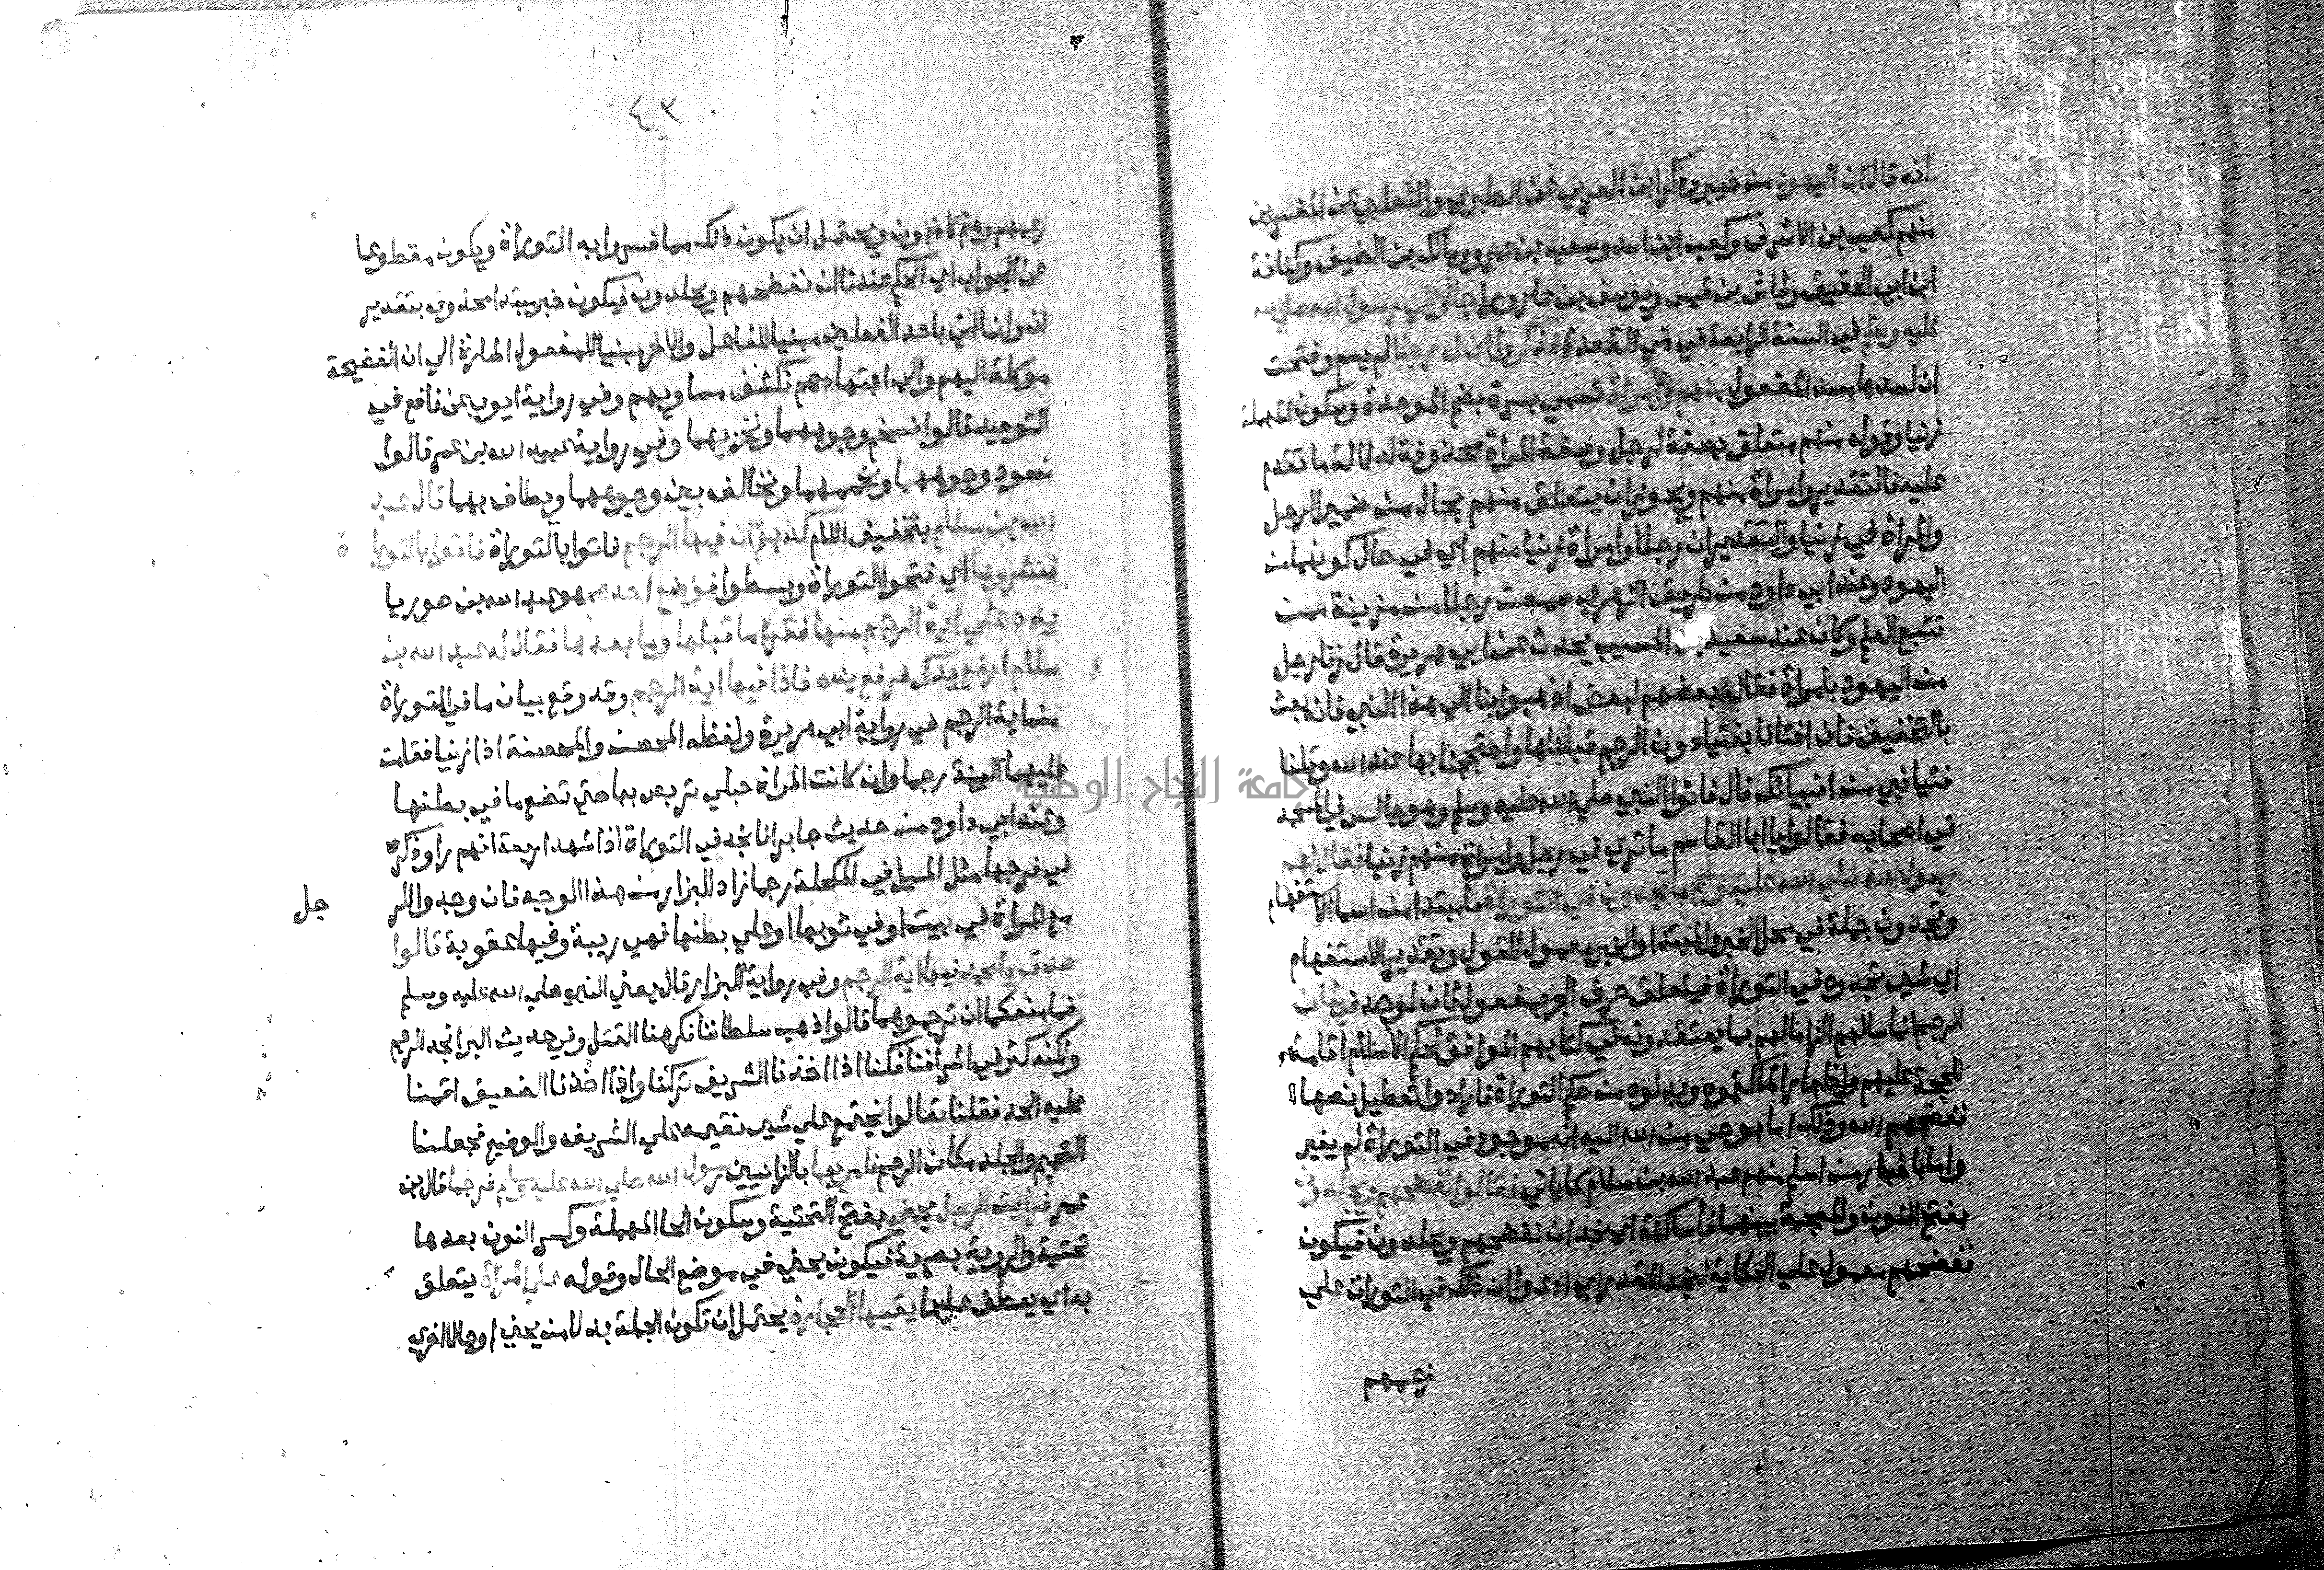 انه قال ان اليهود من خيبر وذكر ابن العربي عن الطبري والثعلبي عن المفسرين
منهم كعب بن الاشرف وكعب ابن اسد وسعيد بن عمرو ومالك بن الضيف وكنانة
ابن ابي الحقيق وشاش بن قيس ويوسف بن عازورا جاؤا الي رسول الله صلي الله
عليه وسلم في السنة الرابعة في ذي القعدة فذكروا له ان رجلا لم يسم وفتحت
ان لسدها مسد المفعول منهم وامراة تسمي بسرة بضم الموحدة وسكون المهملة
زنيا وقوله منهم متعلق بصفة لرجل وصفة المراة محذوفة لدلالة ما تقدم
عليه فالتقدير وامراة منهم ويجوز ان يتعلق منهم بحال من ضمير الرجل
والمراة في زنيا والتقدير ان رجلا وامراة زنيا منهم اي في حال كونهما من
اليهود وعند ابي داود من طريق الزهري سمعت رجلا من مزينة ممن
تتبع العلم وكان عند سعيد بن المسيب يحدث عن ابي هريرة قال زنا رجل
من اليهود بامراة فقال بعضهم لبعض اذهبوا بنا الي هذا النبي فانه بعث
بالتخفيف فان افتانا بفتيا دون الرجم قبلناها واحتججنا بها عند الله وقلنا
فتيا نبي من انبيائك قال فاتوا النبي صلي الله عليه وسلم وهو جالس في المسجد
في اصحابه فقالوا يا ابا القاسم ما تري في رجل وامراة منهم زنيا فقال لهم
رسول الله صلي الله عليه وسلم ما تجدون في التوراة ما مبتدا من اسما الاستفهام
وتجدون جملة في محل الخبر والمبتدا والخبر معمول للقول وتقدير الاستفهام
اي شيى تجدوه في التوراة فيتعلق حرف الجر بمفعول ثان لوجد في شان
الرجم انما سالهم الزاما لهم بما يعتقدونه في كتابهم الموافق لحكم الاسلام اقامة
للحجة عليهم واظهارا لما كتموه وبدلوه من حكم التوراة فارادوا تعطيل نصها
ففضحهم الله وذلك اما بوحي من الله اليه انه موجود في التوراة لم يغير
واما باخبار من اسلم منهم عبد الله بن سلام كما ياتي فقالوا نفضحهم ويجلدون
بفتح النون والمعجمة بينهما فا ساكنة اي نجد ان نفضحهم ويجلدون فيكون
نفضحهم معمول علي الحكاية لنجد المقدر اي ادعوا ان ذلك في التوراة علي
زعمهم
٤٣
زعمهم وهم كاذبون ويحتمل ان يكون ذلك مما فسروا به التوراة ويكون مقطوعا
عن الجواب اي الحكم عندنا ان نفضحهم ويجلدون فيكون خبر مبتدا محذوف بتقدير
ان وانما اتي باحد الفعلين مبنيا للفاعل والاخر مبنيا للمفعول اشارة الي ان الفضيحة
موكلة اليهم والي اجتهادهم نكشف مساويهم وفي رواية ايوب عن نافع في
التوحيد قالوا نسخم وجوههما ونخزيهما وفي رواية عبيد الله بن عمر قالوا
نسود وجوههما ونحممهما ونخالف بين وجوههما ويطاف بهما قال عبد
الله بن سلام بتخفيف اللام كذبتم ان فيها الرجم فاتوا بالتوراة فاتوا بالتوراة
فنشروها اي فتحوا التوراة وبسطوا فوضع احدهم هو عبد الله بن صوريا
يده علي اية الرجم منها فقرا ما قبلها وما بعدها فقال له عبد الله بن
سلام ارفع يدك فرفع يده فاذا فيها اية الرجم وقد وقع بيان ما في التوراة
من اية الرجم في رواية ابي هريرة ولفظه المحصن والمحصنة اذا زنيا فقامت
عليهما البينة رجما وان كانت المراة حبلي تربص بها حتي تضع ما في بطنها
وعند ابي داود من حديث جابر انا نجد في التوراة اذا شهد اربعة انهم راوا ذكره
في فرجها مثل الميل في المكحلة رجما زاد البزار من هذا الوجه فان وجدوا الر
جل
مع المراة في بيت او في ثوبها او علي بطنها فهي ريبة وفيها عقوبة قالوا
صدق يا محمد فيها اية الرجم وفي رواية البزار قال يعني النبي صلي الله عليه وسلم
فما منعكما ان ترجموهما قالوا ذهب سلطاننا فكرهنا القتل وفي حديث البرا نجد الرجم
ولكنه كثر في اشرافنا فكنا اذا اخذنا الشريف تركنا واذا اخذنا الضعيف اقمنا
عليه الحد فقلنا تعالوا نجتمع علي شيى نقيمه علي الشريف والوضيع فجعلنا
التحميم والجلد مكان الرجم فامر بهما بالزانيين رسول الله صلي الله عليه وسلم فرجما قال بن
عمر فرايت الرجل يحني بفتح التحتية وسكون الحا المهملة وكسر النون بعدها
تحتية والروية بصرية فيكون يحني في موضع الحال وقوله علي المراة يتعلق
به اي يعطف عليها يقيها الحجارة يحتمل ان تكون الجملة بدلا من يحني او حالا اخري